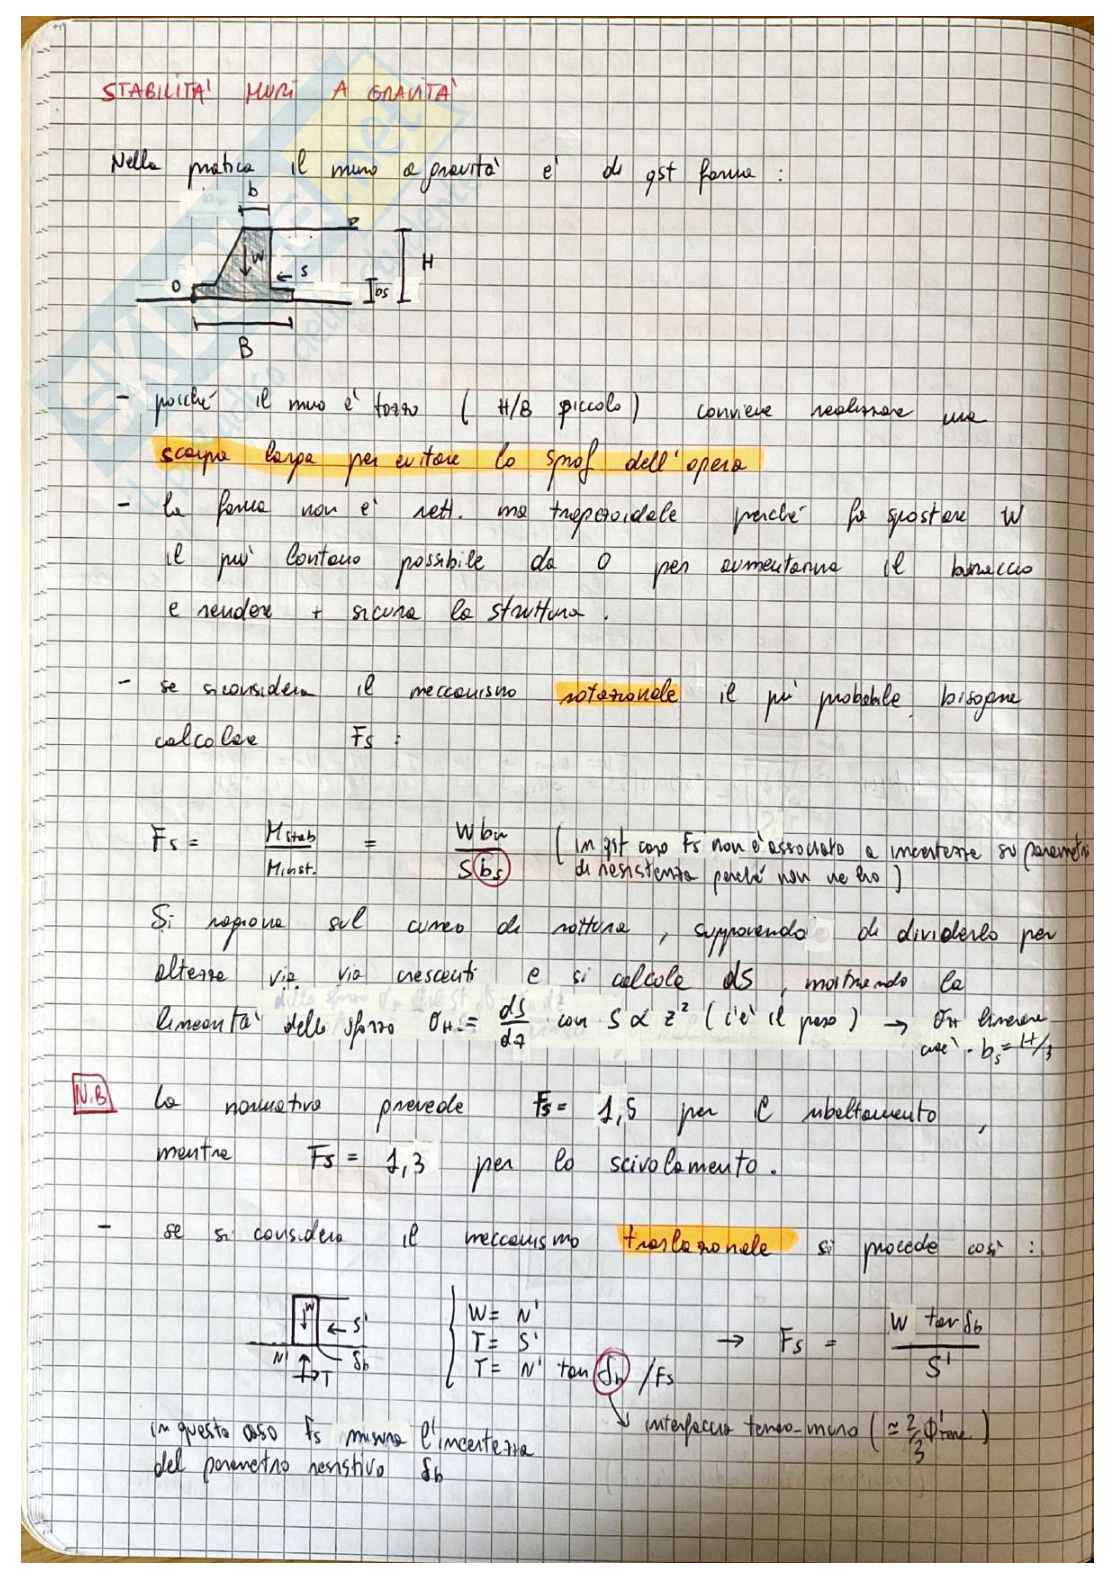 STABILITA' MURI A GRAVITA'
Nella pratica il muro a gravità e' di qst forma :
b
W
S
H
O
DS
B
- poiché il muro e' tozzo ( H/B piccolo ) conviene realizzare una
scarpa larga per evitare lo sprof dell'opera
- la forma non e' rett. ma trapezoidale perché fa spostare W
il più lontano possibile da O per aumentarne il braccio
e rendere + sicura la struttura .
- se si considera il meccanismo rotazionale il più probabile bisogna
calcolare Fs :
Fs = Mstab / Minst. = W bw / S bs ( in qst caso Fs non è associato a incertezze su parametri
di resistenza perché non ve ho )
Si ragiona sul cuneo di rottura , supponendo di dividerlo per
altezze via via crescenti e si calcola dS , mostrando la
linearità dello sforzo σH = dS/dz con S ∝ z² ( c'è il peso ) → σH lineare
cioè . bs = H/3
N.B la normativa prevede Fs = 1,5 per il ribaltamento ,
mentre Fs = 1,3 per lo scivolamento .
- se si considera il meccanismo traslazionale si procede così :
W
S'
N'
T
δb
W = N'
T = S'
T = N' tan δb / Fs
→ Fs = W tan δb / S'
interfaccia terreno-muro ( ≃ 2/3 ϕ' )
in questo caso Fs misura l'incertezza
del parametro resistivo δb